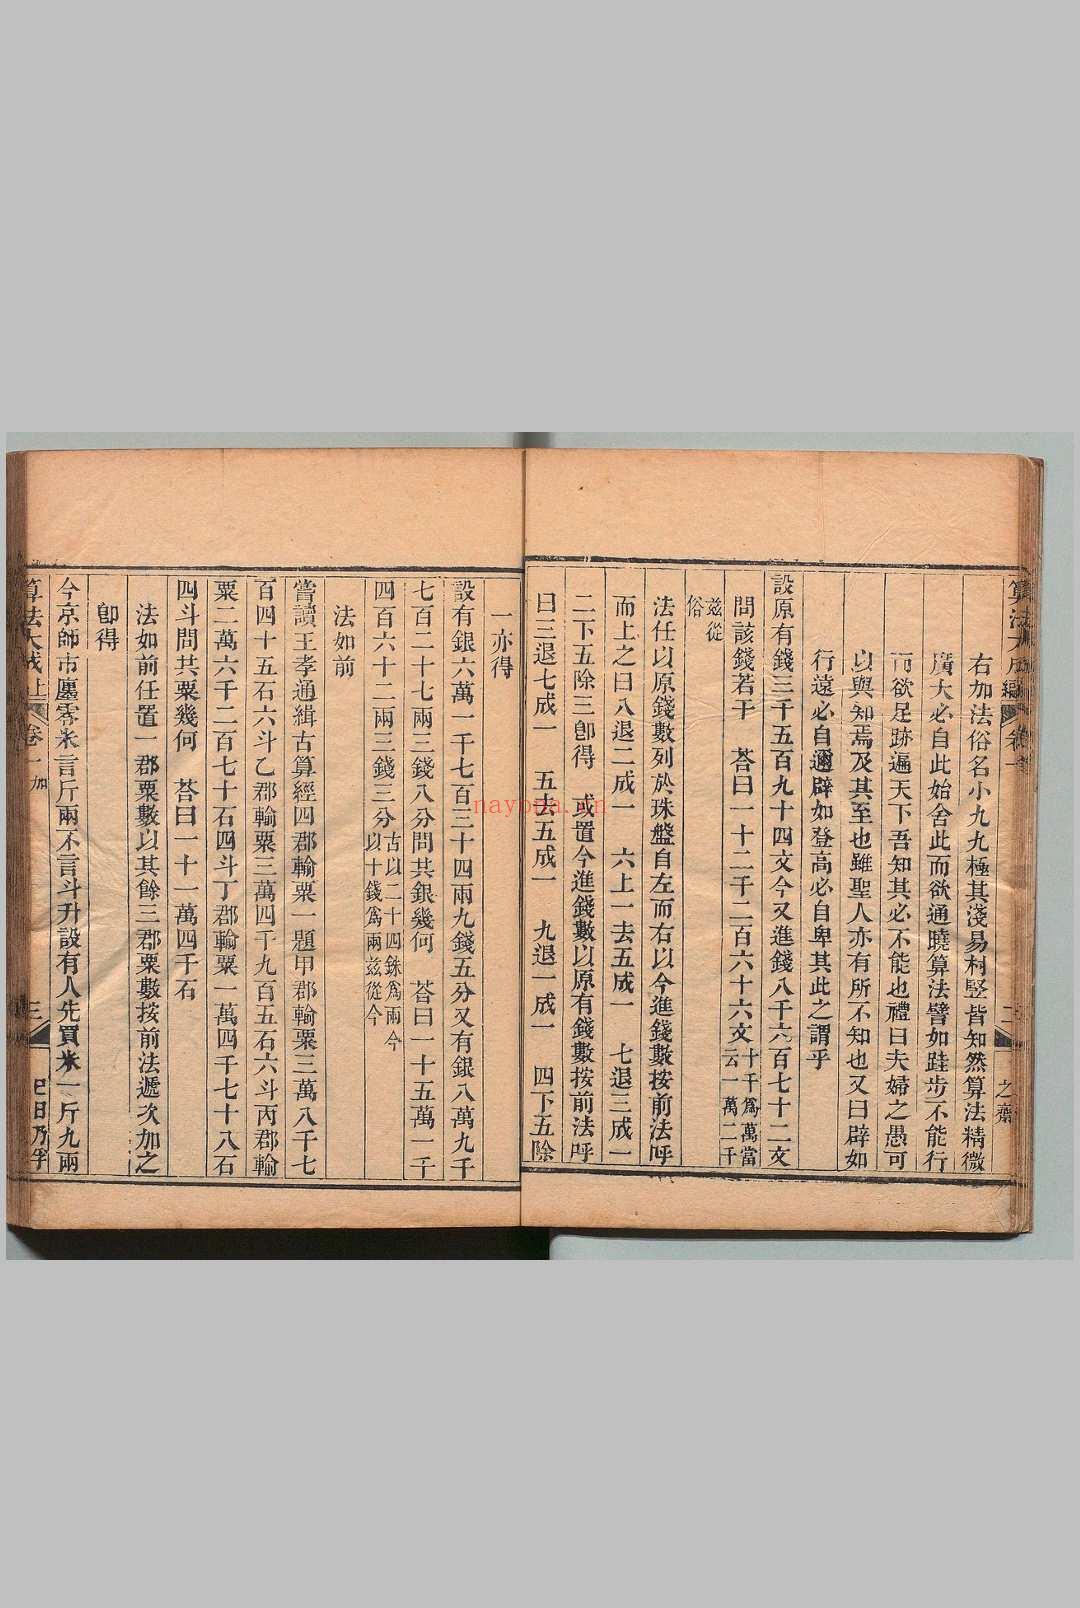 右加法俗名小九九極其淺易村竪皆知然算法精微
廣大必自此始舍此而欲通曉算法譬如跬步不能行
而欲足跡遍天下吾知其必不能也禮曰夫婦之愚可
以與知焉及其至也雖聖人亦有所不知也又曰辟如
行遠必自邇辟如登高必自卑其此之謂乎
設原有錢三千五百九十四文今又進錢八千六百七十二文
問該錢若干　荅曰一十二千二百六十六文十千爲萬當
云一萬二千
茲從
俗
法任以原錢數列於珠盤自左而右以今進錢數按前法呼
而上之曰八退二成一　六上一去五成一　七退三成一
二下五除三卽得　或置今進錢數以原有錢數按前法呼
曰三退七成一　五去五成一　九退一成一　四下五除
一亦得
設有銀六萬一千七百三十四兩九錢五分又有銀八萬九千
七百二十七兩三錢八分問共銀幾何　荅曰一十五萬一千
四百六十二兩三錢三分古以二十四銖爲兩今
以十錢爲兩茲從今
法如前
嘗讀王孝通緝古算經四郡輸粟一題甲郡輸粟三萬八千七
百四十五石六斗乙郡輸粟三萬四千九百五石六斗丙郡輸
粟二萬六千二百七十石四斗丁郡輸粟一萬四千七十八石
四斗問共粟幾何　荅曰一十一萬四千石
法如前任置一郡粟數以其餘三郡粟數按前法遞次加之
卽得
今京師市廛零米言斤兩不言斗升設有人先買米一斤九兩
算法大成上　卷一 加　三